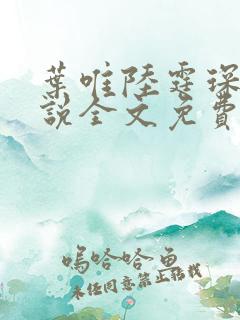 葉唯陸霆琛
說全文免費
嗚哈哈魚
未经同意禁止搭载